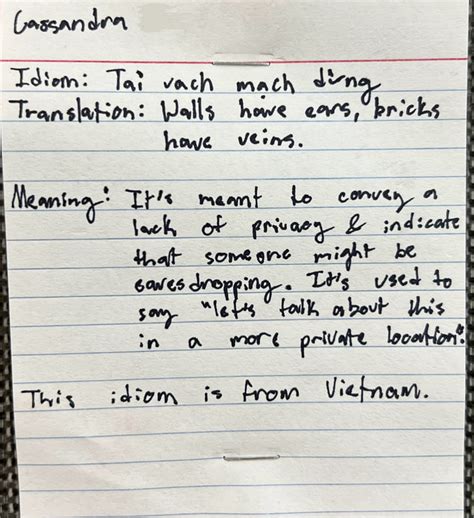 Cassandra
Idiom: Tai vach mach dừng
Translation: Walls have ears, bricks
have veins.
Meaning: It's meant to convey a
lack of privacy & indicate
that someone might be
eavesdropping. It's used to
say "let's talk about this
in a more private location".
This idiom is from Vietnam.